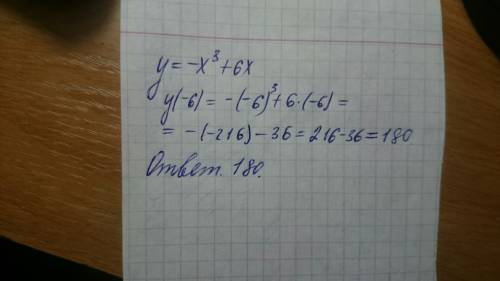 y = -x³ + 6x
y(-6) = -(-6)³ + 6·(-6) =
= -(-216) - 36 = 216 - 36 = 180
Ответ. 180.